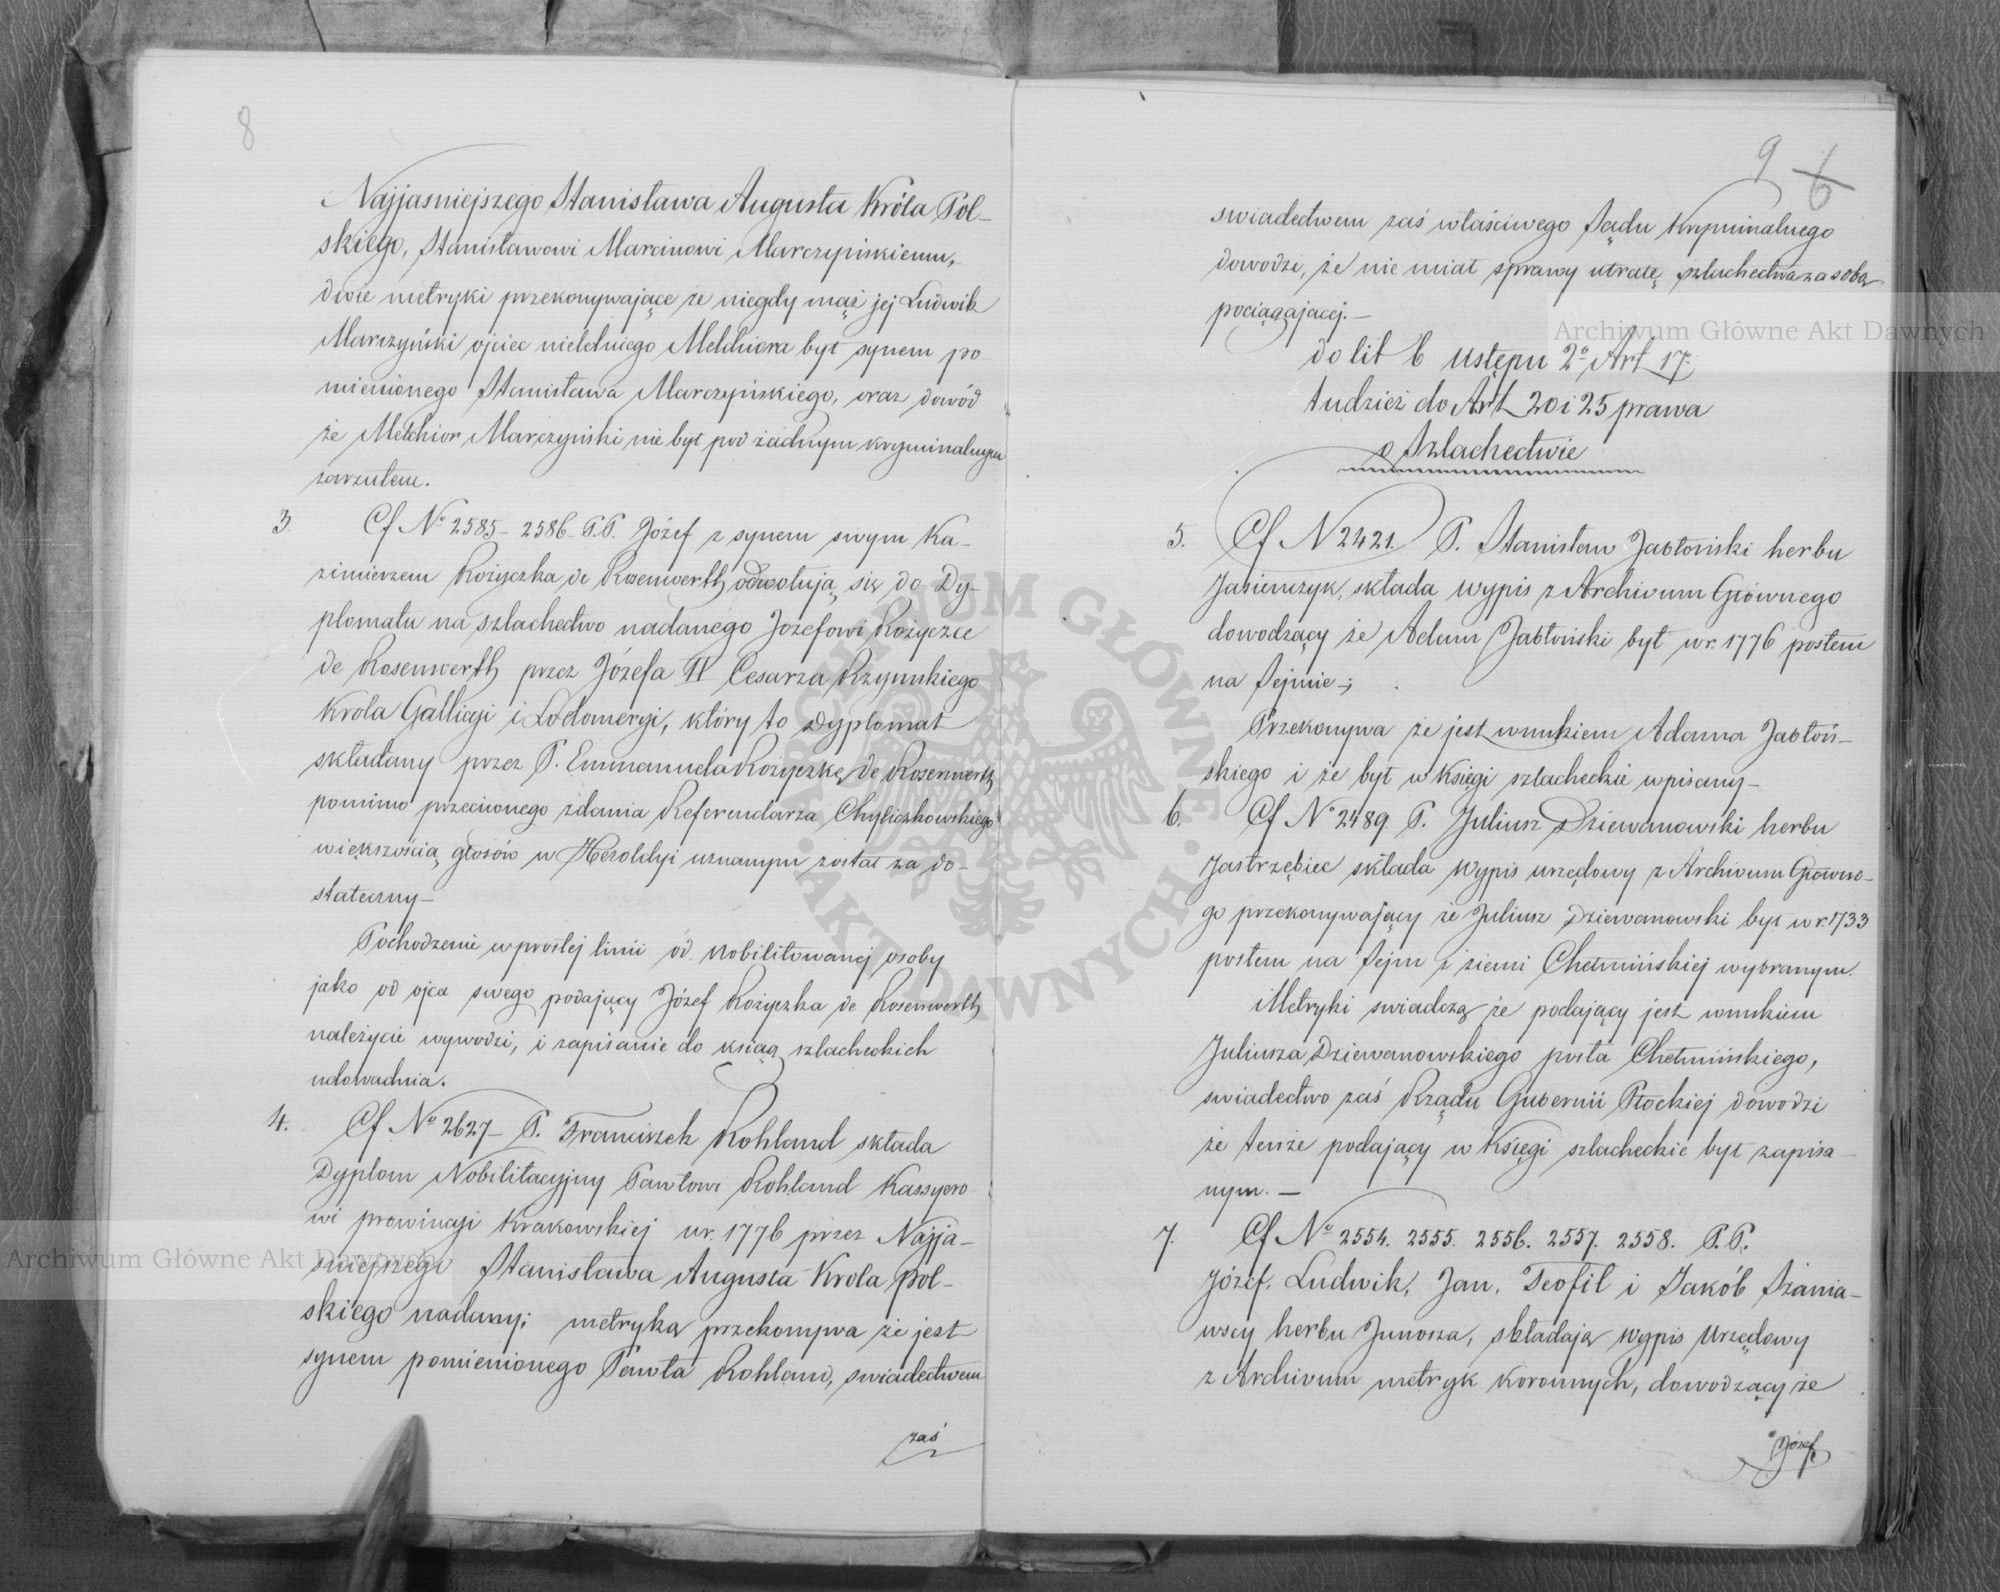 8
Najjasniejszego Stanisława Augusta Króla Pol-
skiego, Stanisławowi Marcinowi Marczyńskiemu,
dwie metryki przekonywające że niegdy mąż jej Ludwik
Marczyński ojciec nieletniego Melchiora był synem po-
mienionego Stanisława Marczyńskiego, oraz dowód
że Melchior Marczyński nie był pod żadnym kryminalnym
zarzutem.
3. Cf No 2585- 2586- P.P. Józef z synem swym Ka-
zimierzem Rożyczka de Rosenwerth odwołują się do Dy-
plomatu na szlachectwo nadanego Jozefowi Rożyczce
de Rosenwerth przez Józefa II Cesarza Rzymskiego
Krola Gallicyi i Lodomeryi, który to dyplomat
składany przez P. Emmanuela Rożyczkę de Rosenwerth
pomimo przeciwnego zdania Referendarza Chyliczkowskiego
większością głosów w Heroldyi uznanym został za do-
stateczny-
Pochodzenie w prostej linii od nobilitowanej osoby
jako od ojca swego podający Józef Rożyczka de Rosenwerth
należycie wywodzi, i zapisanie do ksiąg szlacheckich
udowadnia.
4. Cf No 2627- P. Franciszek Rohland składa
Dyplom Nobilitacyjny Pawłowi Rohland Kassyero-
wi prowincyi Krakowskiej w r. 1776 przez Najja-
sniejszego Stanisława Augusta Krola pol-
skiego nadany; metryką przekonywa że jest
synem pomienionego Pawła Rohland, swiadectwem
zaś
9 6
swiadectwem zaś właściwego Sądu Kryminalnego
dowodzi, że nie miał sprawy utratę szlachectwa za sobą
pociągającej.-
do lit b ustępu 2o Art 17.
tudzież do Art 20 i 25 prawa
o Szlachectwie
5. Cf N 2421. P. Stanisław Jabłoński herbu
Jasieńczyk, składa wypis z Archivum Głównego
dowodzący że Adam Jabłoński był w r. 1776 posłem
na Sejmie-;
Przekonywa że jest wnukiem Adama Jabłoń-
skiego i że był w Księgi szlacheckie wpisany-
6. Cf No 2489. P. Juliusz Dziewanowski herbu
Jastrzębiec składa wypis urzędowy z Archivum Główne-
go przekonywający że Juliusz Dziewanowski był w r. 1733
posłem na Sejm z ziemi Chełmińskiej wybranym.
Metryki swiadczą że podający jest wnukiem
Juliusza Dziewanowskiego posła Chełmińskiego,
swiadectwo zaś Rządu Gubernii Płockiej dowodzi
że tenże podający w Księgi szlacheckie był zapisa-
nym. -
7. Cf No 2554. 2555. 2556. 2557. 2558. P.P.
Józef. Ludwik, Jan, Teofil i Jakób Szania-
wscy herbu Junosza, składają wypis Urzędowy
z Archivum metryk koronnych, dowodzący że
Józef
Archiwum Główne Akt Dawnych
Archiwum Główne Akt Dawnych
ARCHIWUM GŁÓWNE · AKT DAWNYCH ·